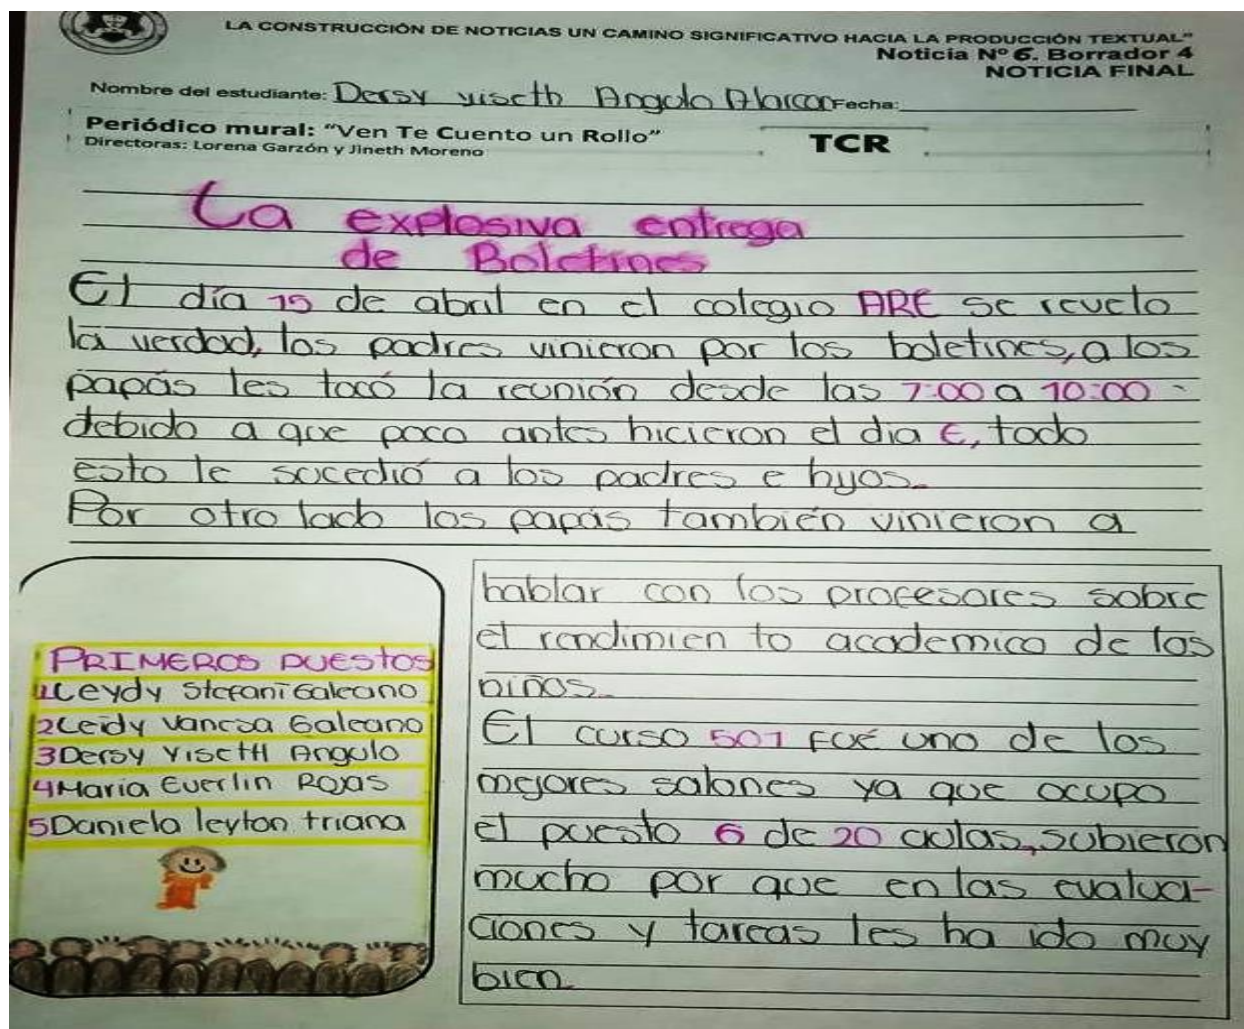 LA CONSTRUCCIÓN DE NOTICIAS UN CAMINO SIGNIFICATIVO HACIA LA PRODUCCIÓN TEXTUAL"
Noticia Nº 6. Borrador 4
NOTICIA FINAL
Nombre del estudiante: Dersy yiseth Angulo Alarcon Fecha:
Periódico mural: "Ven Te Cuento un Rollo"
Directoras: Lorena Garzón y Jineth Moreno
TCR
La explosiva entrega
de Boletines
El día 15 de abril en el colegio ARE se revelo
la verdad, los padres vinieron por los boletines, a los
papás les tocó la reunión desde las 7:00 a 10:00
debido a que poco antes hicieron el dia E, todo
esto le sucedió a los padres e hijos.
Por otro lado los papás también vinieron a
hablar con los profesores sobre
el rendimien to academico de los
niños.
El curso 501 fué uno de los
mejores salones ya que ocupo
el puesto 6 de 20 aulas, subieron
mucho por que en las evalua-
ciones y tareas les ha ido muy
bien
PRIMEROS PUESTOS
1 Leydy Stefani Galeano
2 Leidy Vanesa Galeano
3 Dersy Yiseth Angulo
4 Maria Everlin Rojas
5 Daniela leyton triana